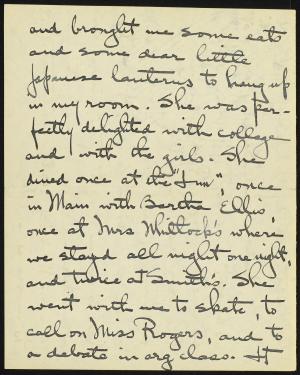 and brought me some eats
and some dear little
Japanese lanterns to hang up
in my room. She was per-
fectly delighted with college
and with the girls. She
dined once at the "Inn", once
in Main with Bertha Ellis,
once at Mrs Whitlock's where
we stayd all night one night,
and twice at Smith's. She
went with me to skate, to
call on Miss Rogers, and to
a debate in arg class. It